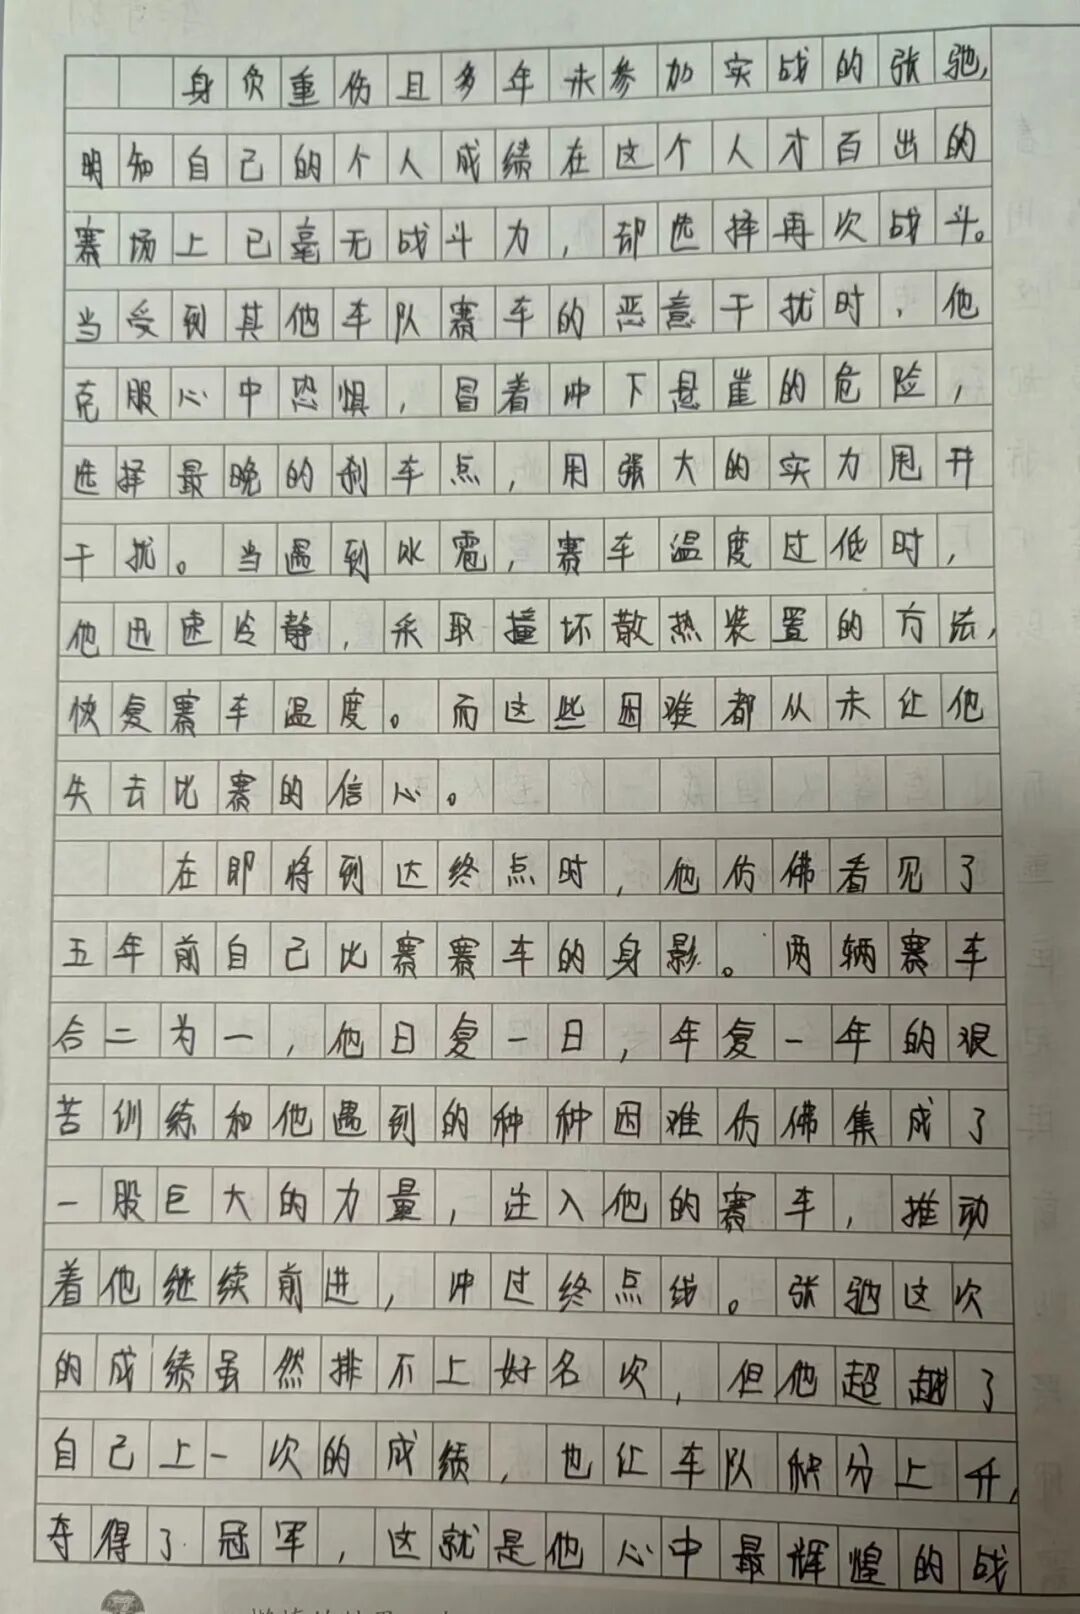 身负重伤且多年未参加实战的张驰,
明知自己的个人成绩在这个人才百出的
赛场上已毫无战斗力，却选择再次战斗。
当受到其他车队赛车的恶意干扰时，他
克服心中恐惧，冒着冲下悬崖的危险，
选择最晚的刹车点，用强大的实力甩开
干扰。当遇到冰雹，赛车温度过低时，
他迅速冷静，采取撞坏散热装置的方法,
恢复赛车温度。而这些困难都从未让他
失去比赛的信心。
在即将到达终点时，他仿佛看见了
五年前自己比赛赛车的身影。两辆赛车
合二为一，他日复一日，年复一年的艰
苦训练和他遇到的种种困难仿佛集成了
一股巨大的力量，注入他的赛车，推动
着他继续前进，冲过终点线。张驰这次
的成绩虽然排不上好名次，但他超越了
自己上一次的成绩，也让车队积分上升,
夺得了冠军，这就是他心中最辉煌的战